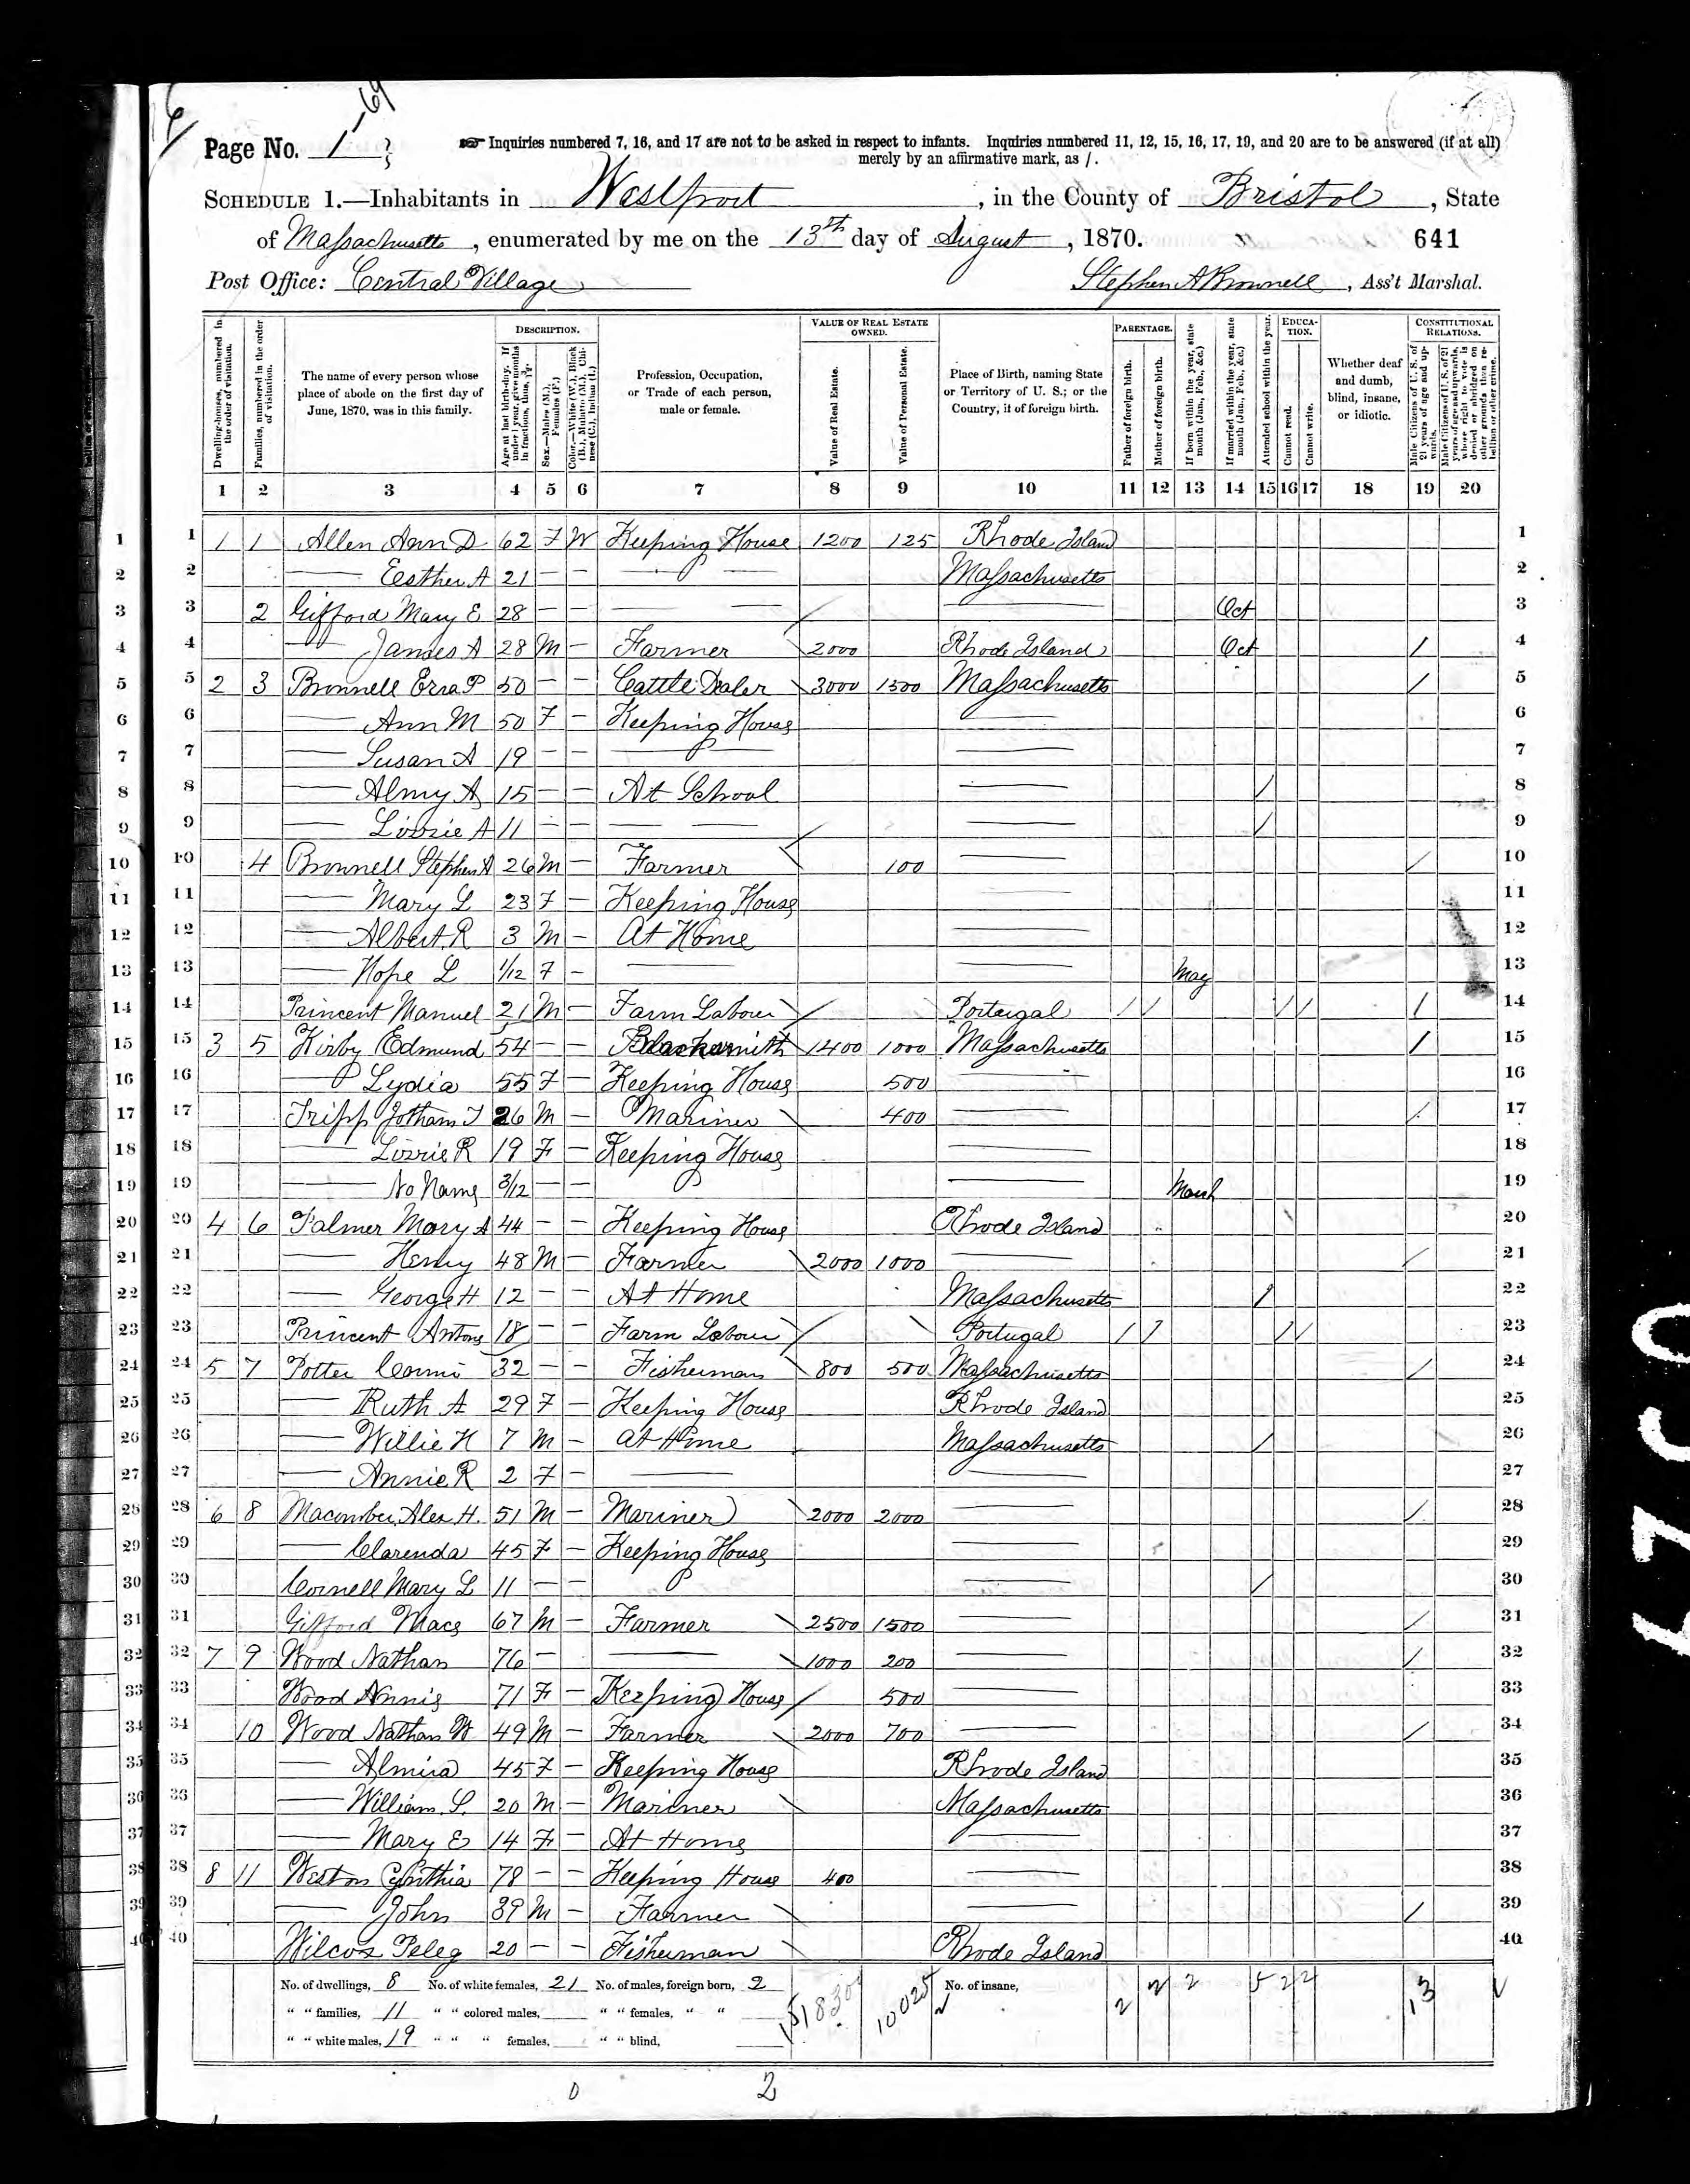 Page No. 1
Inquiries numbered 7, 16, and 17 are not to be asked in respect to infants. Inquiries numbered 11, 12, 15, 16, 17, 19, and 20 are to be answered (if at all)
merely by an affirmative mark, as /.
SCHEDULE 1.—Inhabitants in Westport, in the County of Bristol, State
of Massachusetts, enumerated by me on the 13th day of August, 1870. 641
Post Office: Central Village Stephen A Brownell, Ass't Marshal.
Dwelling-houses, numbered in the order of visitation.
Families, numbered in the order of visitation.
The name of every person whose place of abode on the first day of June, 1870, was in this family.
DESCRIPTION.
Age at last birth-day. If under 1 year, give months in fractions, thus, 3/12.
Sex.—Males (M.), Females (F.)
Color.—White (W.), Black (B.), Mulatto (M.), Chinese (C.), Indian (I.)
Profession, Occupation, or Trade of each person, male or female.
VALUE OF REAL ESTATE OWNED.
Value of Real Estate.
Value of Personal Estate.
Place of Birth, naming State or Territory of U. S.; or the Country, if of foreign birth.
PARENTAGE.
Father of foreign birth.
Mother of foreign birth.
If born within the year, state month (Jan., Feb., &c.)
If married within the year, state month (Jan., Feb., &c.)
EDUCATION.
Attended school within the year.
Cannot read.
Cannot write.
Whether deaf and dumb, blind, insane, or idiotic.
CONSTITUTIONAL RELATIONS.
Male Citizens of U. S. of 21 years of age and upwards.
Male Citizens of U. S. of 21 years of age and upwards, whose right to vote is denied or abridged on other grounds than rebellion or other crime.
1 2 3 4 5 6 7 8 9 10 11 12 13 14 15 16 17 18 19 20
1 1 1 Allen Ann D 62 F W Keeping House 1200 125 Rhode Island 1
2 — Eesther A 21 — — — — Massachusetts 2
3 2 Gifford Mary E 28 — — — — — Oct 3
4 — James A 28 M — Farmer 2000 Rhode Island Oct / 4
5 2 3 Brownell Ezra P 50 — — Cattle Dealer 3000 1500 Massachusetts / 5
6 — Ann M 50 F — Keeping House — 6
7 — Susan A 19 — — — — 7
8 — Almy A 15 — — At School — / 8
9 — Lizzie A 11 — — — — — / 9
10 4 Brownell Stephen A 26 M — Farmer 100 — / 10
11 — Mary L 23 F — Keeping House — 11
12 — Albert R 3 M — At Home — 12
13 — Hope L 1/12 F — — — May 13
14 Princent Manuel 21 M — Farm Labour Portugal / / / / / 14
15 3 5 Kirby Edmund 54 — — Blacksmith 1400 1000 Massachusetts / 15
16 — Lydia 55 F — Keeping House 500 — 16
17 Tripp Jotham T 26 M — Mariner 400 — / 17
18 — Lizzie R 19 F — Keeping House — 18
19 — No Name 3/12 — — — March 19
20 4 6 Palmer Mary A 44 — — Keeping House Rhode Island 20
21 — Henry 48 M — Farmer 2000 1000 — / 21
22 — George H 12 — — At Home Massachusetts / 22
23 Princent Antone 18 — — Farm Labour Portugal / / / / 23
24 5 7 Potter 32 — — Fisherman 800 500 Massachusetts / 24
25 — Ruth A 29 F — Keeping House Rhode Island 25
26 — Willie H 7 M — At Home Massachusetts / 26
27 — Annie R 2 F — — — 27
28 6 8 Macomber Alex H. 51 M — Mariner 2000 2000 — / 28
29 — Clarenda 45 F — Keeping House — 29
30 Cornell Mary L 11 — — — / 30
31 Gifford 67 M — Farmer 2500 1500 — / 31
32 7 9 Wood Nathan 76 — — 1000 200 — / 32
33 Wood Annis 71 F — Keeping House 500 — 33
34 10 Wood Nathan W 49 M — Farmer 2000 700 — / 34
35 — Almira 45 F — Keeping House Rhode Island 35
36 — William S. 20 M — Mariner Massachusetts 36
37 — Mary E 14 F — At Home — 37
38 8 11 Weston Cynthia 78 — — Keeping House 400 — 38
39 — John 39 M — Farmer — / 39
40 Wilcox Peleg 20 — — Fisherman Rhode Island 40
No. of dwellings, 8 No. of white females, 21 No. of males, foreign born, 2 No. of insane,
" " families, 11 " " colored males, " " females, " "
" " white males, 19 " " " females, " " blind,
10025 2 2 2 5 2 2 13
0 2